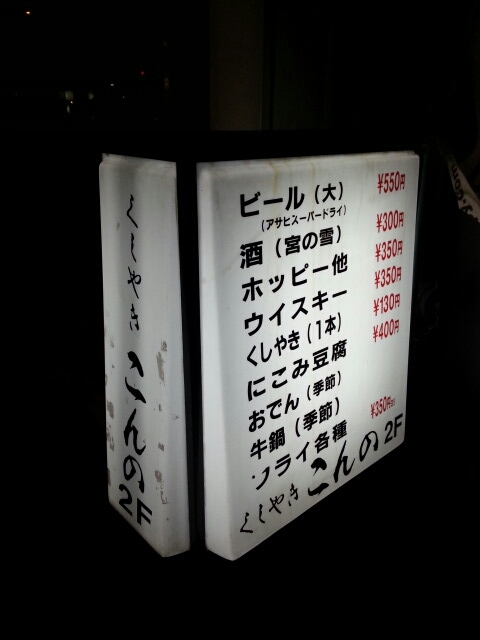 ビール（大） ¥550円
（アサヒスーパードライ）
酒（宮の雪） ¥300円
ホッピー他 ¥350円
ウイスキー ¥350円
くしやき（1本） ¥130円
にこみ豆腐 ¥400円
おでん（季節）
牛鍋（季節）
フライ各種 ¥350円
くしやき こんの 2F
くしやき こんの 2F